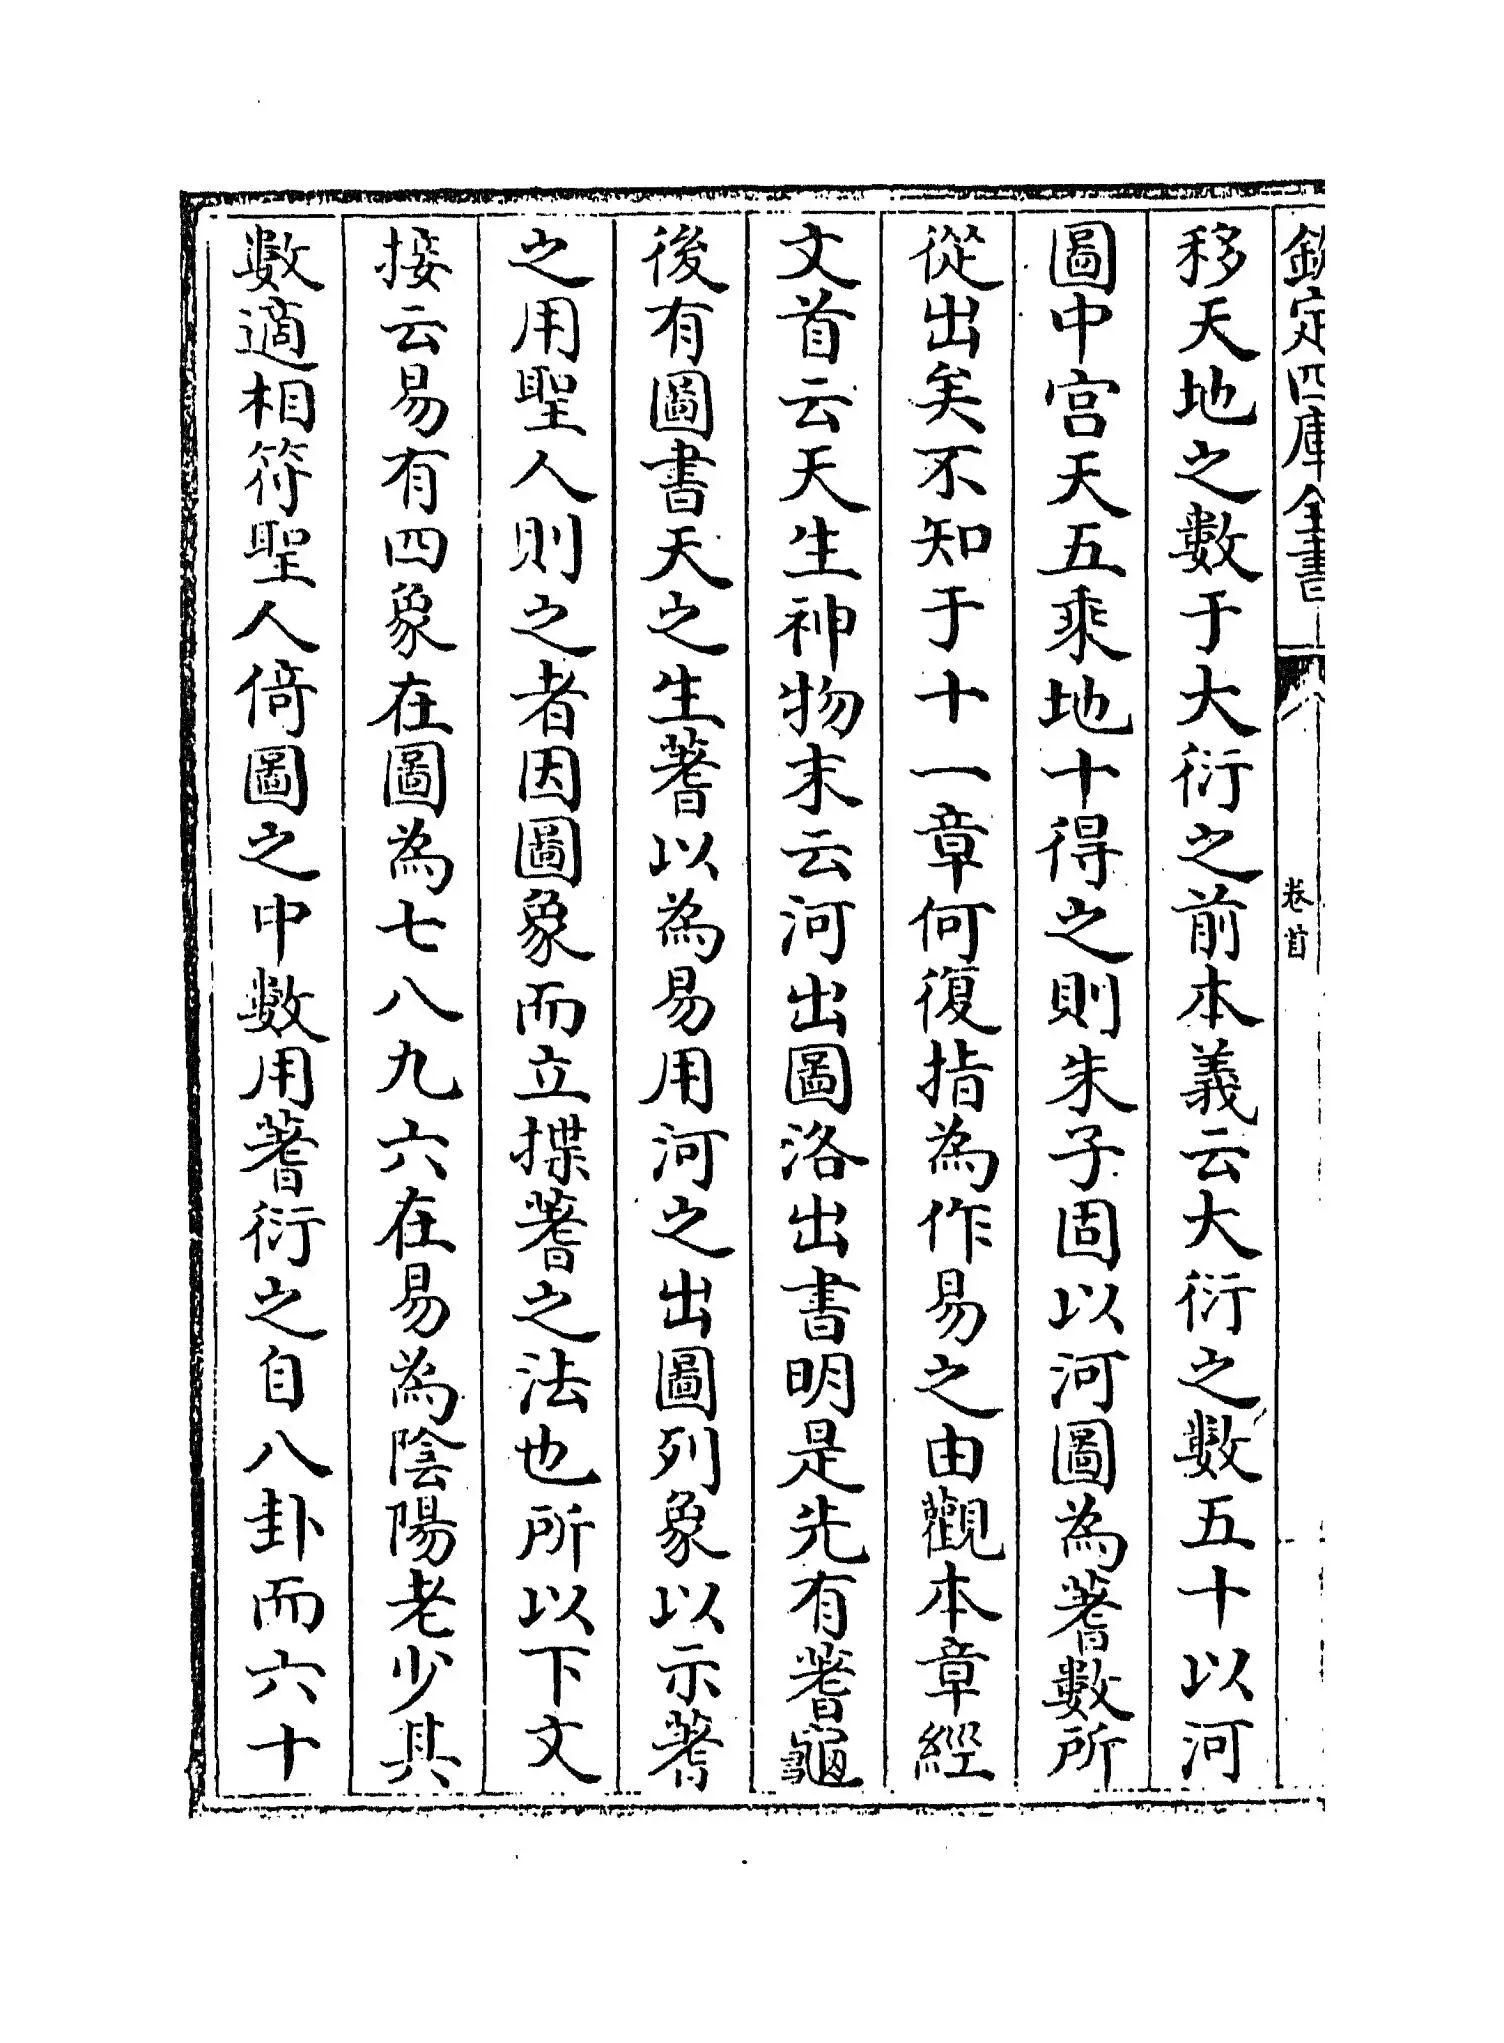 欽定四庫全書
卷首
移天地之數于大衍之前本義云大衍之數五十以河
圖中宮天五乘地十得之則朱子固以河圖為蓍數所
從出矣不知于十一章何復指為作易之由觀本章經
文首云天生神物末云河出圖洛出書明是先有蓍龜
後有圖書天之生蓍以為易用河之出圖列象以示蓍
之用聖人則之者因圖象而立揲蓍之法也所以下文
接云易有四象在圖為七八九六在易為陰陽老少其
數適相符聖人倚圖之中數用蓍衍之自八卦而六十